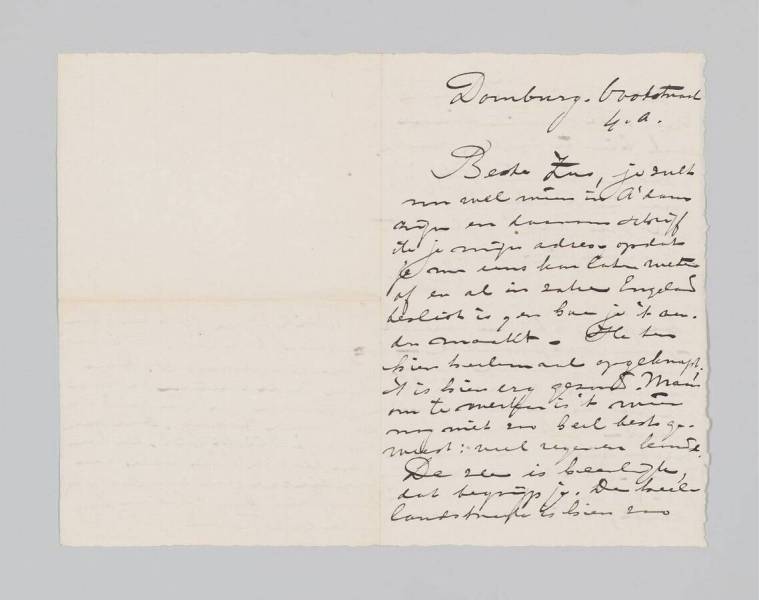 Domburg. Ooststraat
4.a.
Beste Zus, je zult
nu wel weer in A'dam
zijn en daarom schrijf
ik je mijn adres opdat
je me eens kan laten weten
of en al in zake Engeland
beslist is en hoe je 't an-
ders maakt. Ik ben
hier heelemaal opgeknapt.
't is hier erg gezond. Maar
om te werken is 't weer
nog niet zoo heel best ge-
weest: veel regen en wind.
De zee is heerlijk,
dat begrijp je. De heele
landstreek is hier zoo